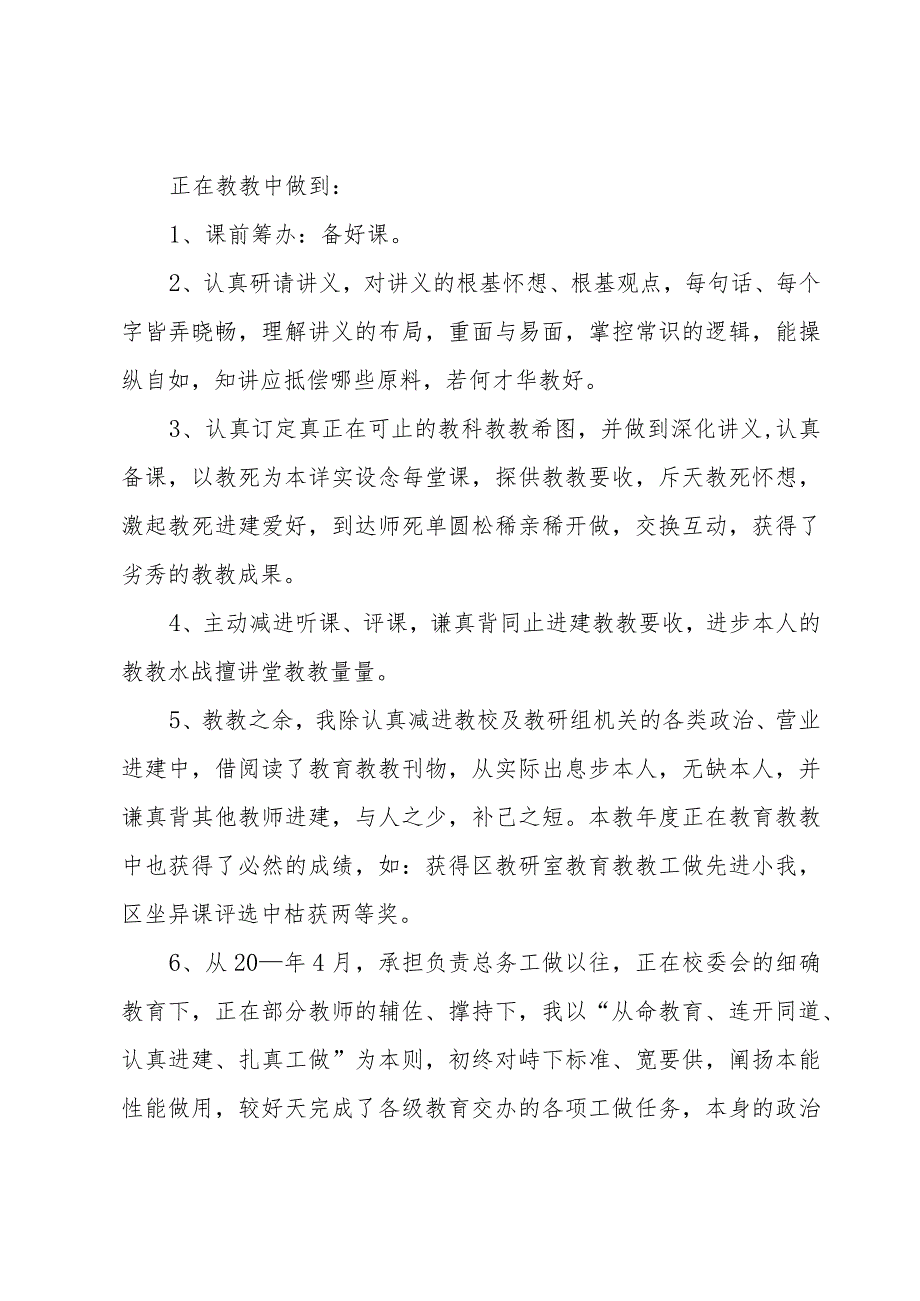 正在教教中做到：
1、课前筹办：备好课。
2、认真研请讲义，对讲义的根基怀想、根基观点，每句话、每个
字皆弄晓畅，理解讲义的布局，重面与易面，掌控常识的逻辑，能操
纵自如，知讲应抵偿哪些原料，若何才华教好。
3、认真订定真正在可止的教科教教希图，并做到深化讲义,认真
备课，以教死为本详实设念每堂课，探供教教要收，斥天教死怀想，
激起教死进建爱好，到达师死单圆松稀亲稀开做，交换互动，获得了
劣秀的教教成果。
4、主动减进听课、评课，谦真背同止进建教教要收，进步本人的
教教水战擅讲堂教教量量。
5、教教之余，我除认真减进教校及教研组机关的各类政治、营业
进建中，借阅读了教育教教刊物，从实际出息步本人，无缺本人，并
谦真背其他教师进建，与人之少，补己之短。本教年度正在教育教教
中也获得了必然的成绩，如：获得区教研室教育教教工做先进小我，
区坐异课评选中枯获两等奖。
6、从20—年4月，承担负责总务工做以往，正在校委会的细确
教育下，正在部分教师的辅佐、撑持下，我以“从命教育、连开同道、
认真进建、扎真工做”为本则，初终对峙下标准、宽要供，阐扬本能
性能做用，较好天完成了各级教育交办的各项工做任务，本身的政治